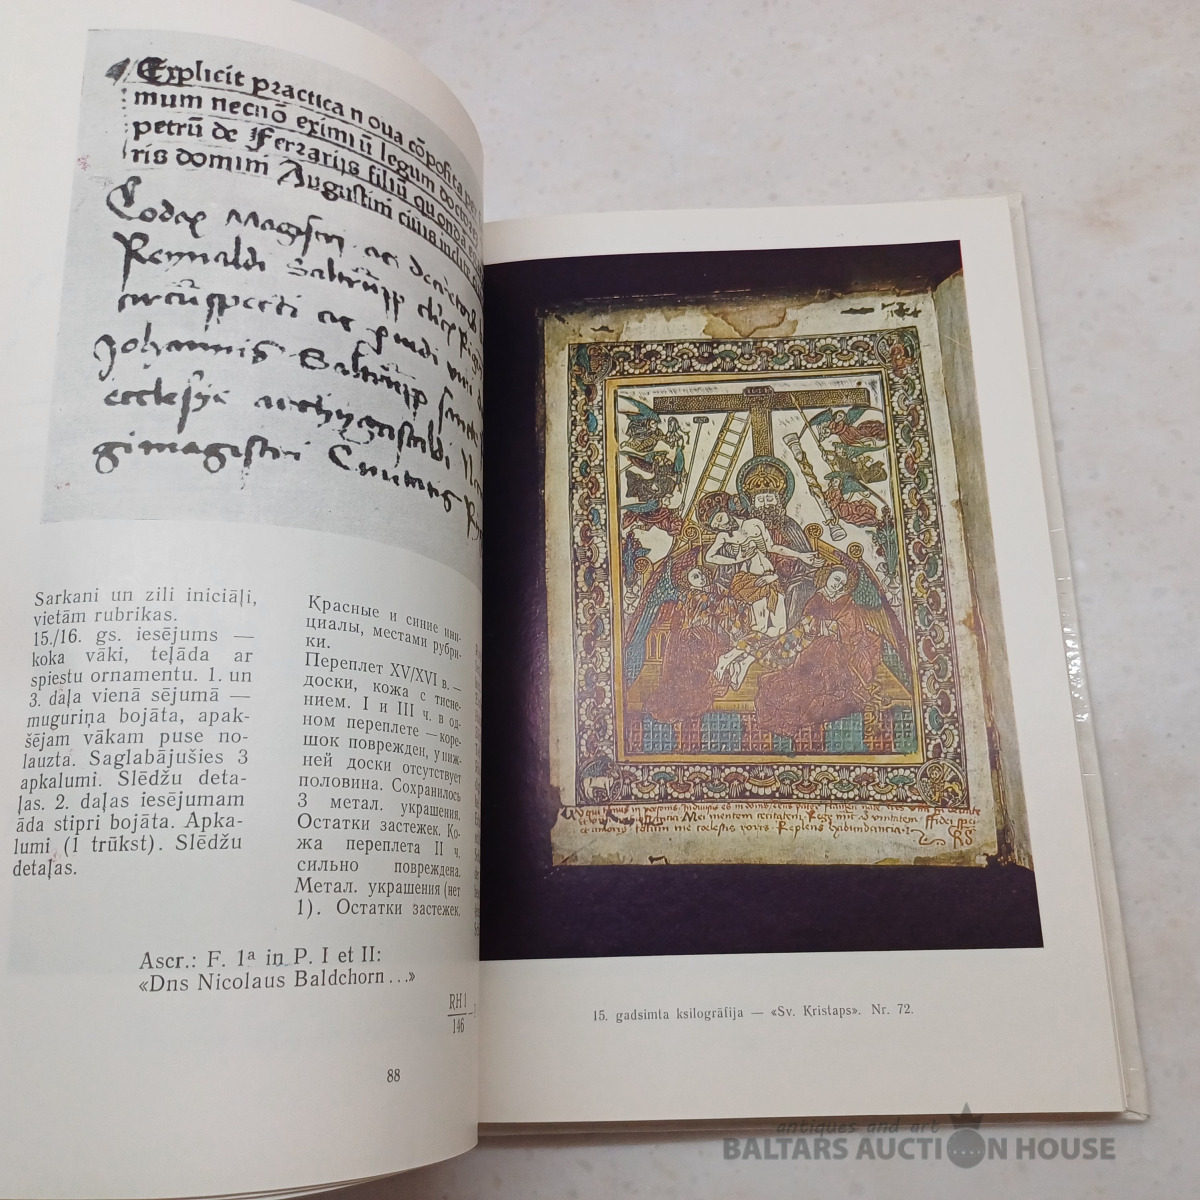 Explicit practica noua cōposita per
mum necnō eximiū legum doctorem
petrū de Ferrariis filiū quonda
ris domini Augustini ciuis
Codex Magistri ac
Reynaldi Saltrüpp
circūspecti ac
Johannis Saltrüpp
ecclesye
gimagistri Ciuitatis
Sarkani un zili iniciāļi,
vietām rubrikas.
15./16. gs. iesējums —
koka vāki, teļāda ar
spiestu ornamentu. 1. un
3. daļa vienā sējumā —
muguriņa bojāta, apak-
šējam vākam puse no-
lauzta. Saglabājušies 3
apkalumi. Slēdžu deta-
ļas. 2. daļas iesējumam
āda stipri bojāta. Apka-
lumi (1 trūkst). Slēdžu
detaļas.
Красные и синие ини-
циалы, местами рубри-
ки.
Переплет XV/XVI в. —
доски, кожа с тисне-
нием. I и III ч. в од-
ном переплете — коре-
шок поврежден, у ниж-
ней доски отсутствует
половина. Сохранилось
3 метал. украшения.
Остатки застежек. Ко-
жа переплета II ч.
сильно повреждена.
Метал. украшения (нет
1). Остатки застежек.
Ascr.: F. 1ª in P. I et II:
«Dns Nicolaus Baldchorn...»
RH 1
146
88
15. gadsimta ksilogrāfija — «Sv. Kristaps». Nr. 72.
antiques and art
BALTARS AUCTION HOUSE